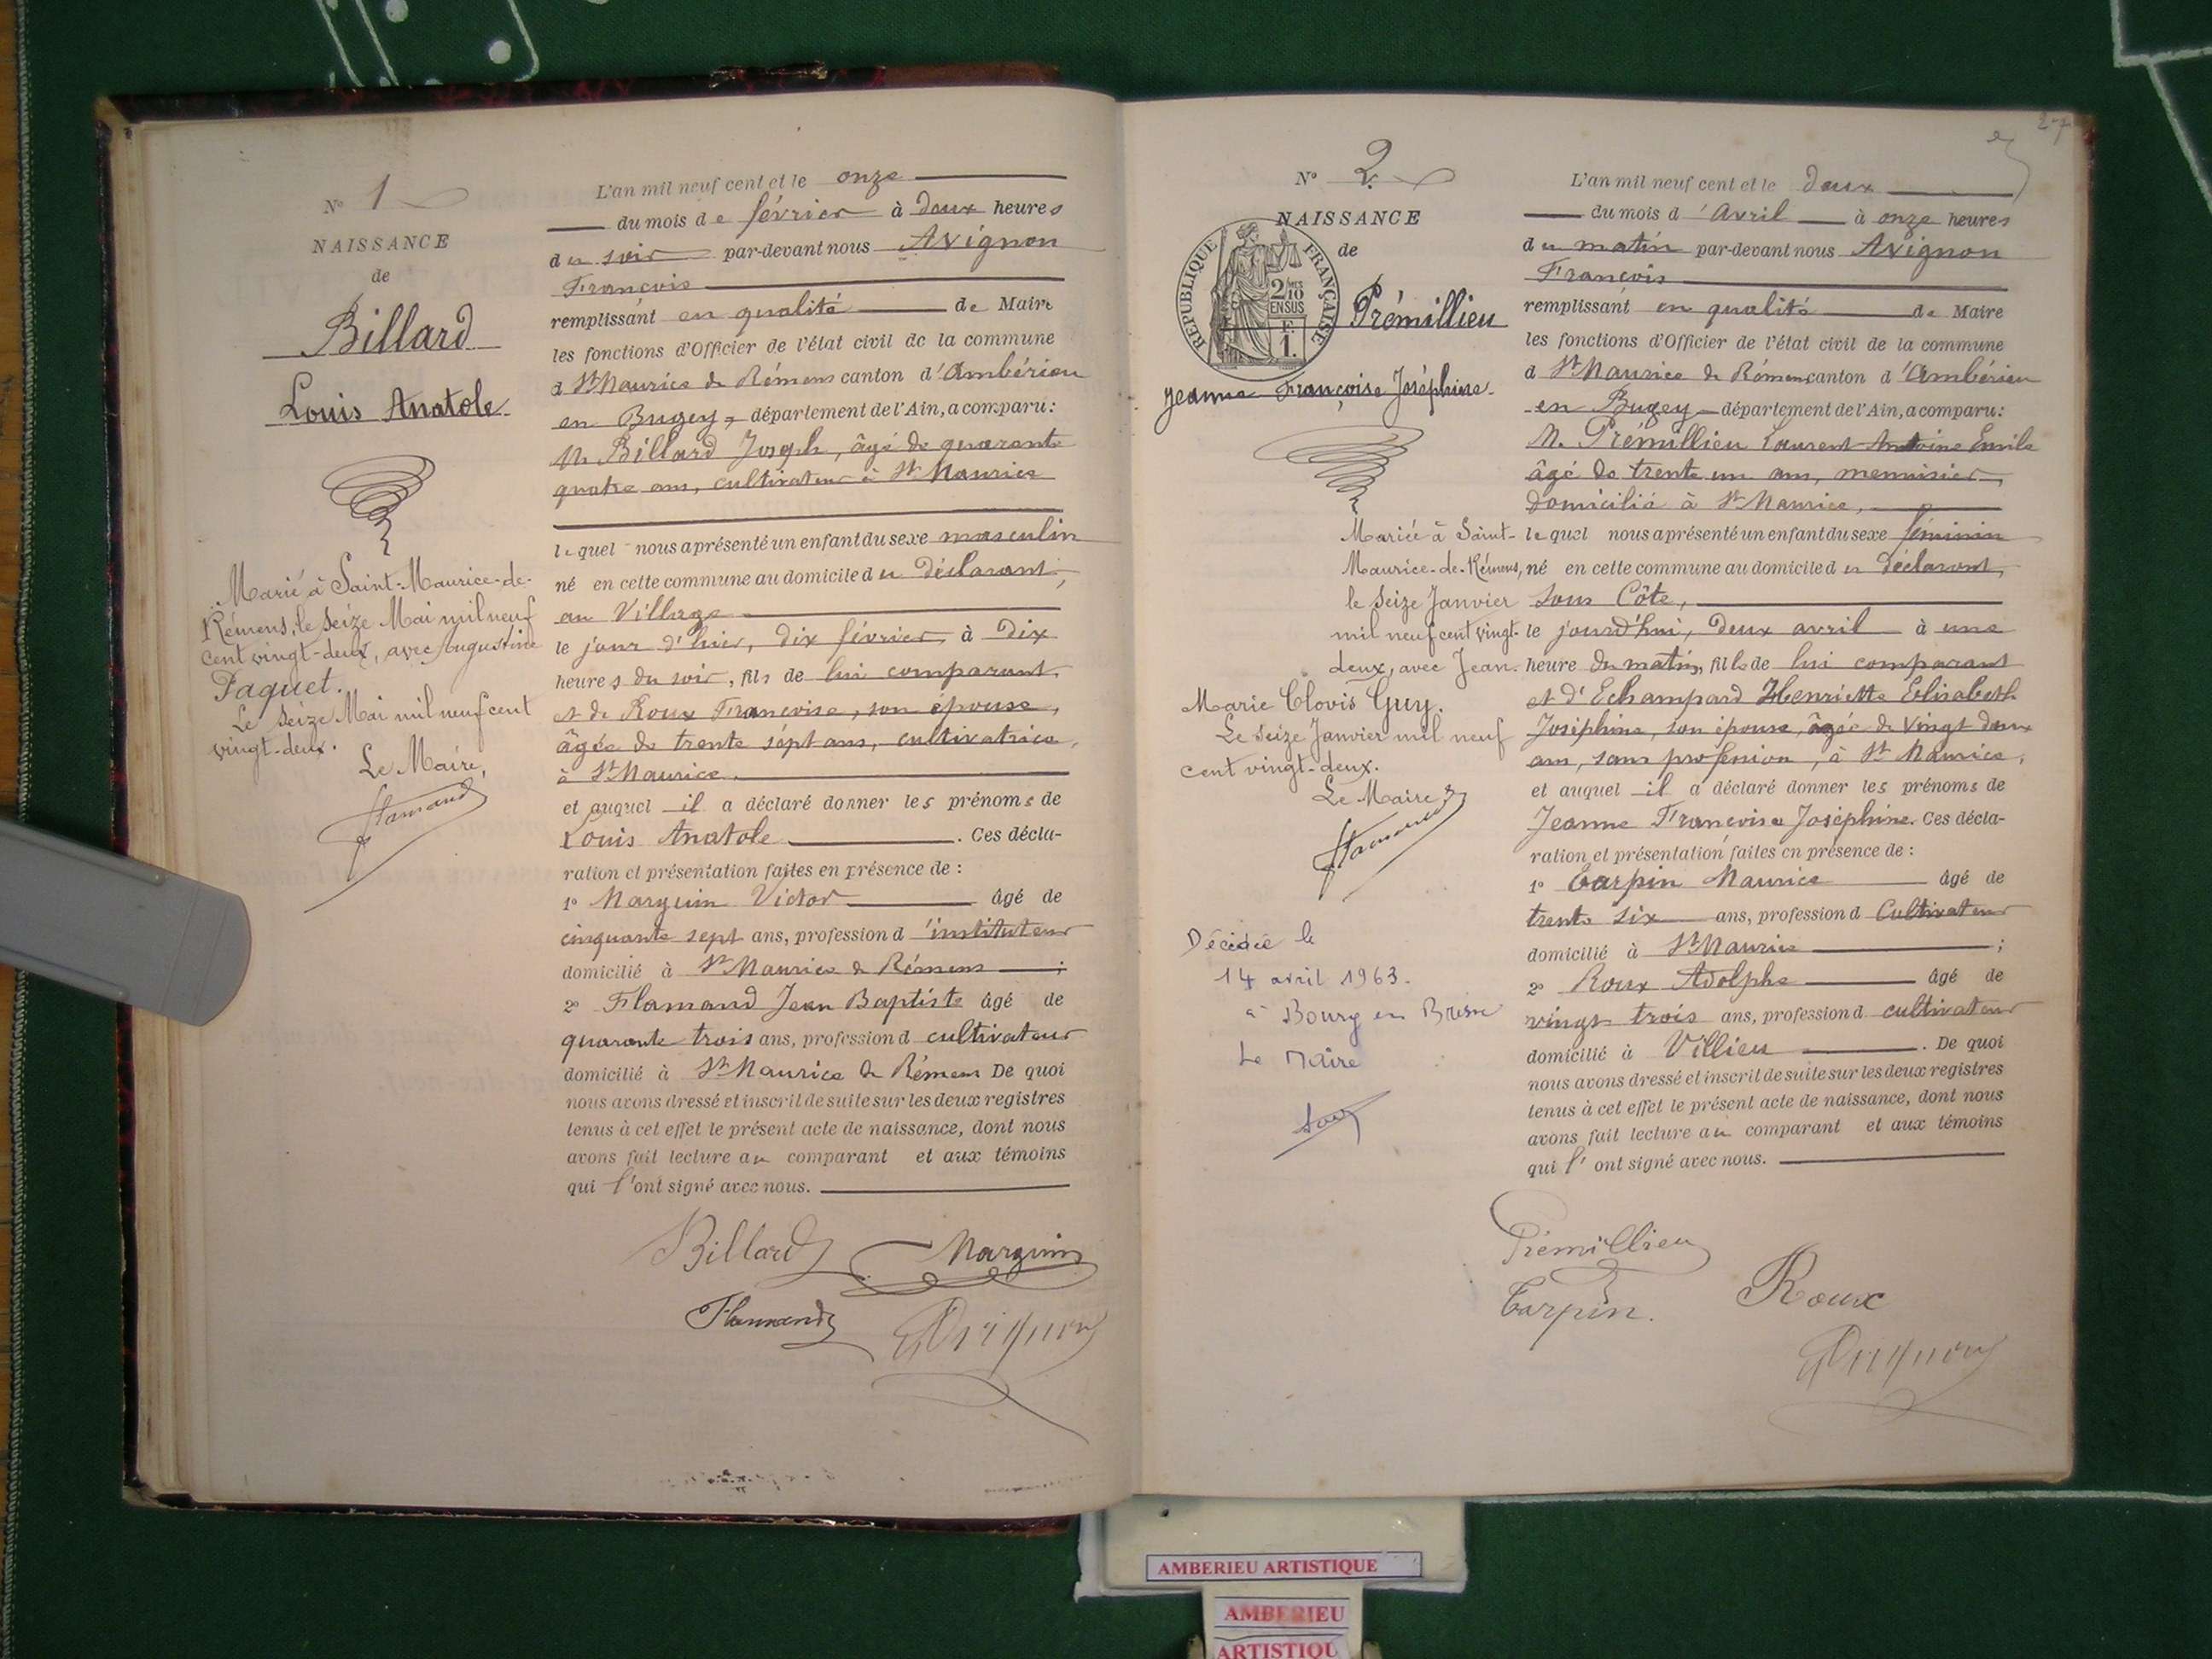 N° 1
NAISSANCE
de
Billard
Louis Anatole
Marié à Saint-Maurice-de-
Rémens, le seize Mai mil neuf
cent vingt-deux, avec Augustine
Paquet.
Le seize Mai mil neuf cent
vingt-deux.
Le Maire,
Flamand
L'an mil neuf cent et le onze
du mois de février à deux heures
du soir par-devant nous Avignon
François
remplissant en qualité de Maire
les fonctions d'Officier de l'état civil de la commune
d St Maurice de Rémens canton d'Ambérieu
en Bugey, département de l'Ain, a comparu:
M. Billard Joseph, âgé de quarante
quatre ans, cultivateur à St Maurice
lequel nous a présenté un enfant du sexe masculin
né en cette commune au domicile du déclarant,
au Village
le jour d'hier, dix février, à dix
heures du soir, fils de lui comparant
et de Roux Françoise, son épouse,
âgée de trente sept ans, cultivatrice,
à St Maurice.
et auquel il a déclaré donner les prénoms de
Louis Anatole. Ces décla-
ration et présentation faites en présence de :
1° Marguin Victor âgé de
cinquante sept ans, profession d'instituteur
domicilié à St Maurice de Rémens ;
2° Flamand Jean Baptiste âgé de
quarante trois ans, profession d cultivateur
domicilié à St Maurice de Rémens De quoi
nous avons dressé et inscrit de suite sur les deux registres
tenus à cet effet le présent acte de naissance, dont nous
avons fait lecture au comparant et aux témoins
qui l'ont signé avec nous.
Billard Marguin
Flamand Avignon
27
2
N° 2
NAISSANCE
de
REPUBLIQUE FRANÇAISE
2/10
EN SUS
F.
1.
Prémillieu
Jeanne Françoise Joséphine
Mariée à Saint-
Maurice-de-Rémens,
le seize Janvier
mil neuf cent vingt-
deux, avec Jean-
Marie Clovis Guy.
Le seize Janvier mil neuf
cent vingt-deux.
Le Maire,
Flamand
Décédée le
14 avril 1963.
à Bourg en Bresse
Le Maire
L'an mil neuf cent et le deux
du mois d'Avril à onze heures
du matin par-devant nous Avignon
François
remplissant en qualité de Maire
les fonctions d'Officier de l'état civil de la commune
d St Maurice de Rémens canton d'Ambérieu
en Bugey département de l'Ain, a comparu:
M. Prémillieu Laurent Antoine Emile
âgé de trente un ans, menuisier
domicilié à St Maurice,
lequel nous a présenté un enfant du sexe féminin
né en cette commune au domicile du déclarant,
sous Côte,
le jourd'hui, deux avril à une
heure du matin, fille de lui comparant
et d'Echampard Henriette Elisabeth
Joséphine, son épouse, âgée de vingt deux
ans, sans profession, à St Maurice,
et auquel il a déclaré donner les prénoms de
Jeanne Françoise Joséphine. Ces décla-
ration et présentation faites en présence de :
1° Carpin Maurice âgé de
trente six ans, profession d Cultivateur
domicilié à St Maurice ;
2° Roux Adolphe âgé de
vingt trois ans, profession d cultivateur
domicilié à Villieu. De quoi
nous avons dressé et inscrit de suite sur les deux registres
tenus à cet effet le présent acte de naissance, dont nous
avons fait lecture au comparant et aux témoins
qui l'ont signé avec nous.
Prémillieu
Carpin. Roux
Avignon
AMBERIEU ARTISTIQUE
AMBERIEU
ARTISTIQU